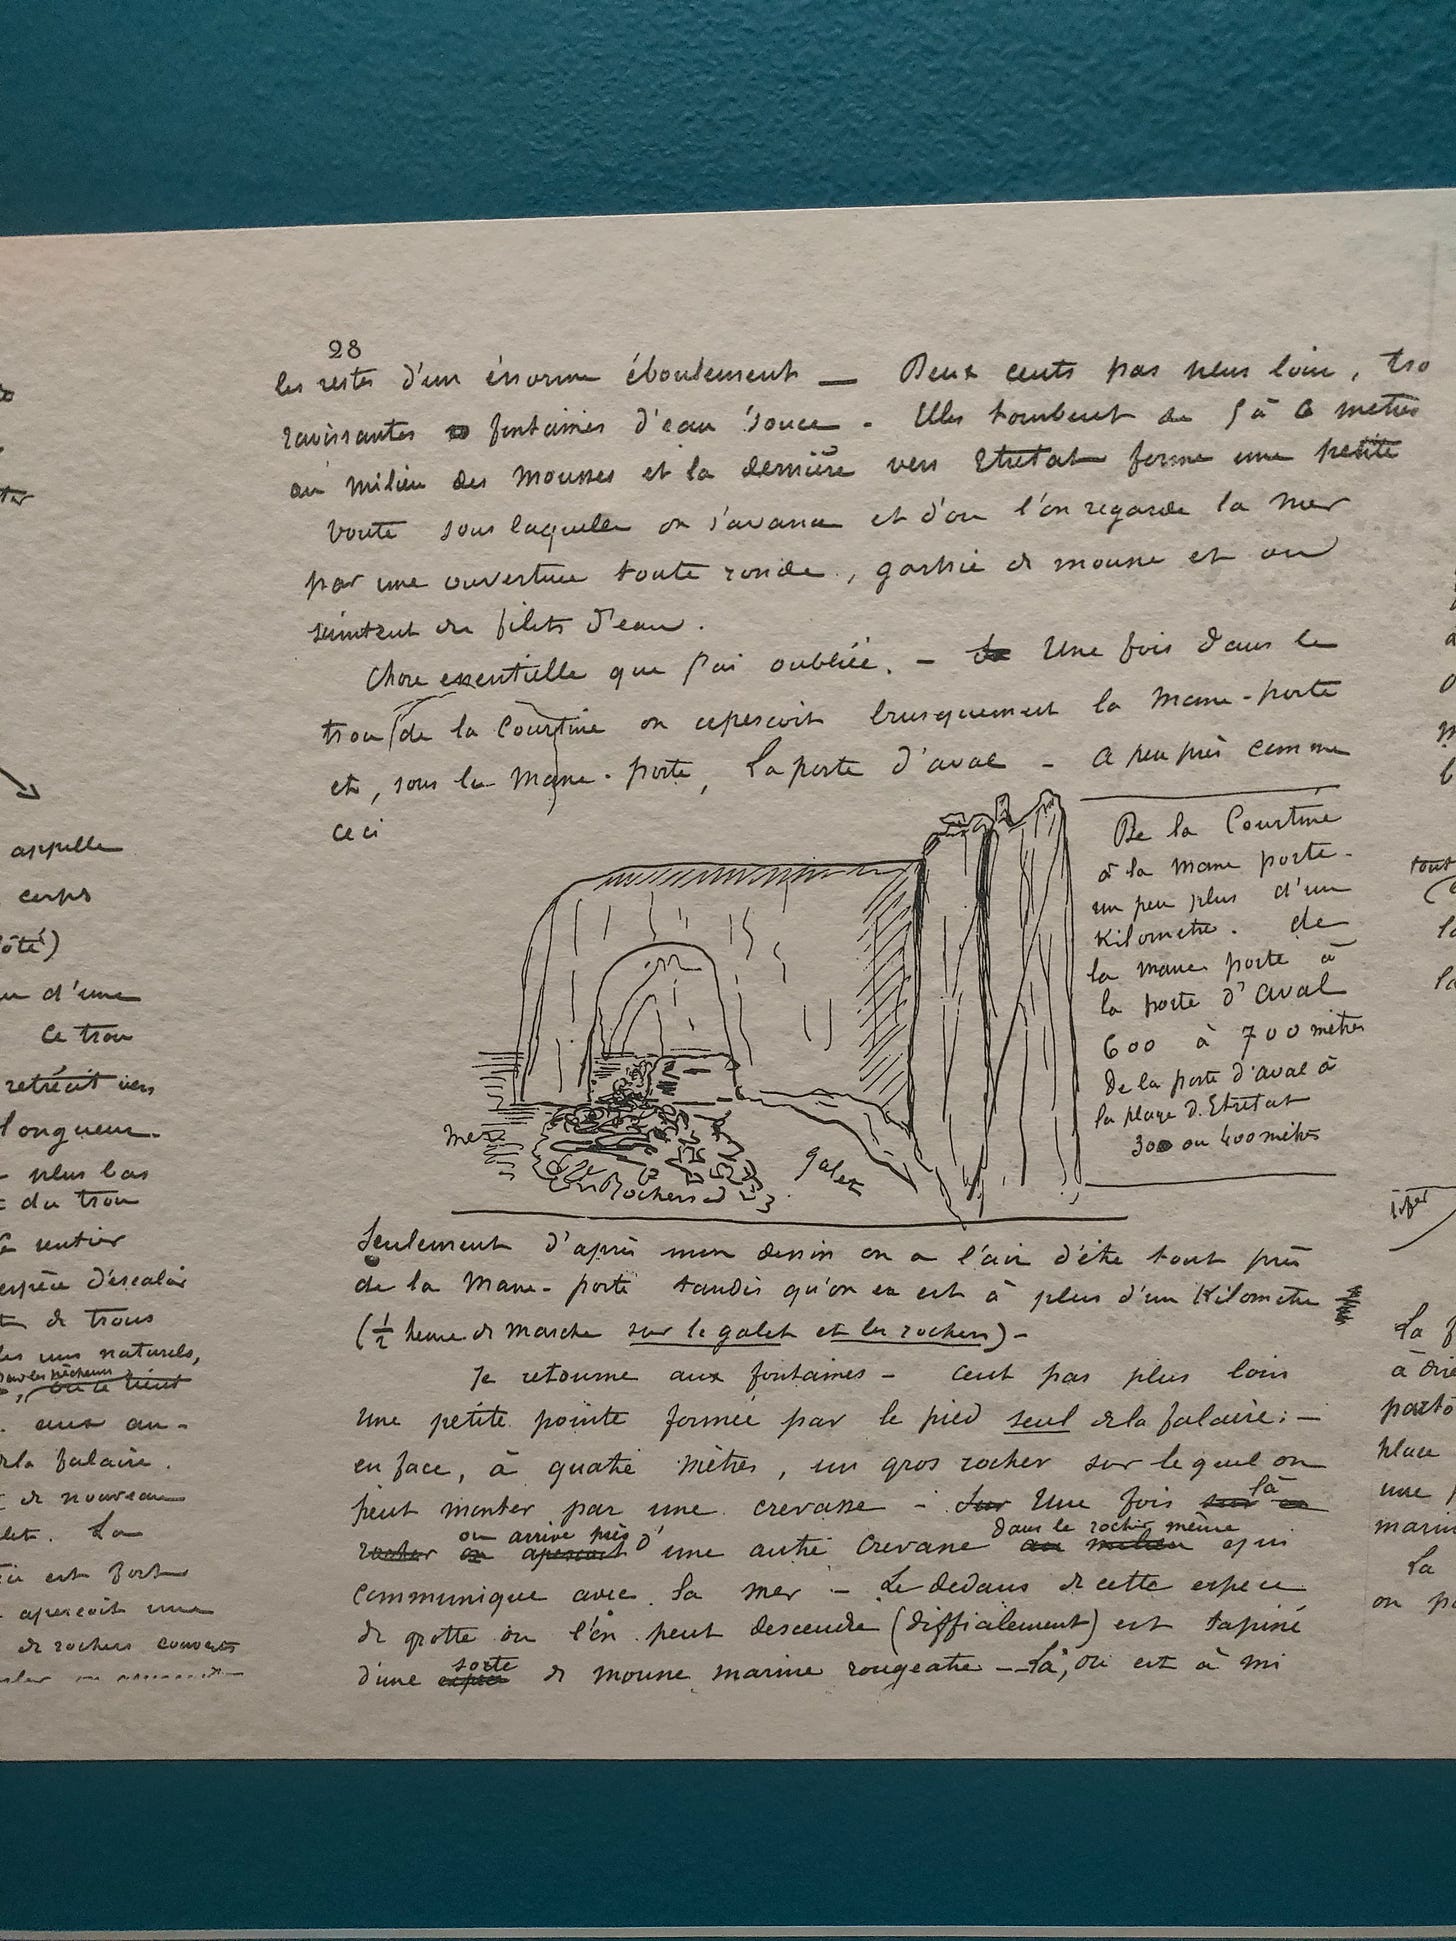 28
les restes d'un énorme éboulement — Deux cents pas plus loin,
ravissantes fontaines d'eau douce - Elles tombent de 5 à 6 mètres
au milieu des mousses et la dernière vers Etretat forme une petite
voute sous laquelle on s'avance et d'ou l'on regarde la mer
par une ouverture toute ronde, garnie de mousse et ou
suintent des filets d'eau.
Chose essentielle que j'ai oubliée. - Une fois dans le
trou de la Courtine on aperçoit brusquement la Manne-porte
et, sous la Manne-porte, La porte d'aval - a peu près comme
ceci
De la Courtine
à la manne porte -
un peu plus d'un
Kilomètre. de
la manne porte à
la porte d'aval
600 à 700 mètres
De la porte d'aval à
la plage d'Etretat
300 ou 400 mètres
mer
Rochers
galet
Seulement d'après mon dessin on a l'air d'être tout près
de la Manne-porte tandis qu'on en est à plus d'un Kilomètre
(½ heure de marche sur le galet et les rochers) -
Je retourne aux fontaines - Cent pas plus loin
une petite pointe formée par le pied seul de la falaise; -
en face, à quatre mètres, un gros rocher sur lequel on
peut monter par une crevasse - Sur Une fois sur là ce
rocher on aperçoit on arrive près d'une autre crevasse au milieu dans le rocher même qui
communique avec la mer - Le dedans de cette espèce
de grotte ou l'on peut descendre (difficilement) est tapissé
d'une espèce sorte de mousse marine rougeatre - Là, on est à mi
appelle
corps
côté)
d'une
Ce trou
retrécit vers
longueur.
plus bas
du trou
sentier
espèce d'escalier
de trous
les uns naturels,
par les pêcheurs
aux au-
de la falaise.
de nouveau
La
est fort
aperçoit une
de rochers couverts
tout
la
la
La
à
place
une
marin
La
on